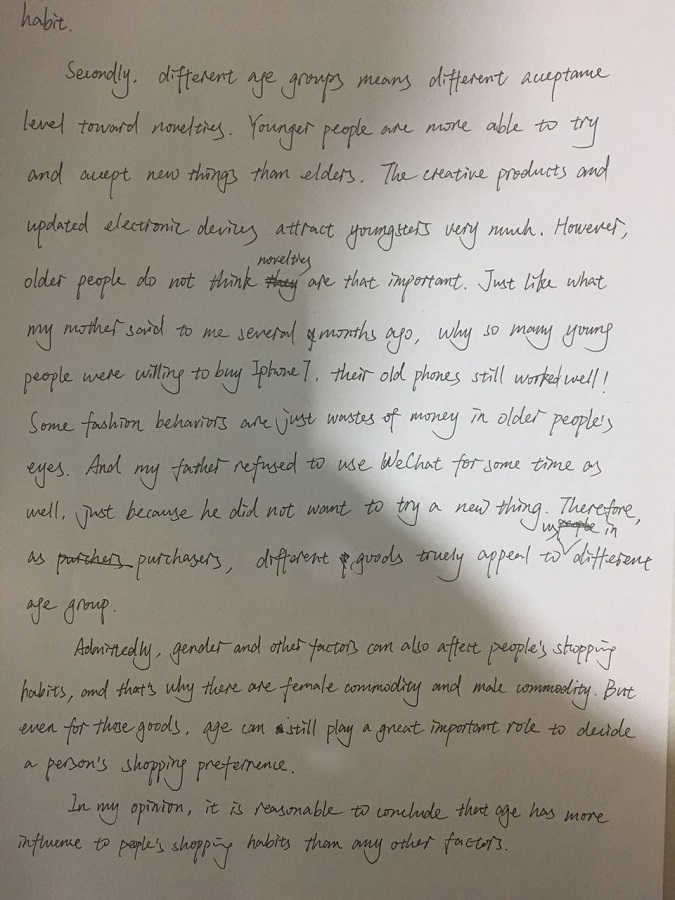 habit.
Secondly, different age groups means different acceptance
level toward novelties. Younger people are more able to try
and accept new things than elders. The creative products and
updated electronic devices attract youngsters very much. However,
novelties
older people do not think they are that important. Just like what
my mother said to me several months ago, why so many young
people were willing to buy Iphone7, their old phones still worked well!
Some fashion behaviors are just wastes of money in older people's
eyes. And my father refused to use WeChat for some time as
well, just because he did not want to try a new thing. Therefore,
us people in
as purchers purchasers, different goods truely appeal to different
age group.
Admittedly, gender and other factors can also affect people's shopping
habits, and that's why there are female commodity and male commodity. But
even for those goods, age can still play a great important role to decide
a person's shopping preferrence.
In my opinion, it is reasonable to conclude that age has more
influence to people's shopping habits than any other factors.